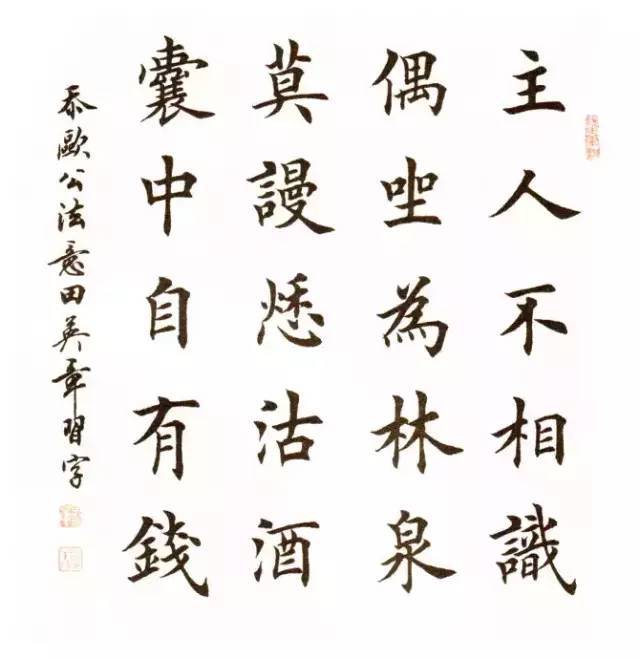 主人不相識
偶坐為林泉
莫謾愁沽酒
囊中自有錢
忝歐公法意田英章習字